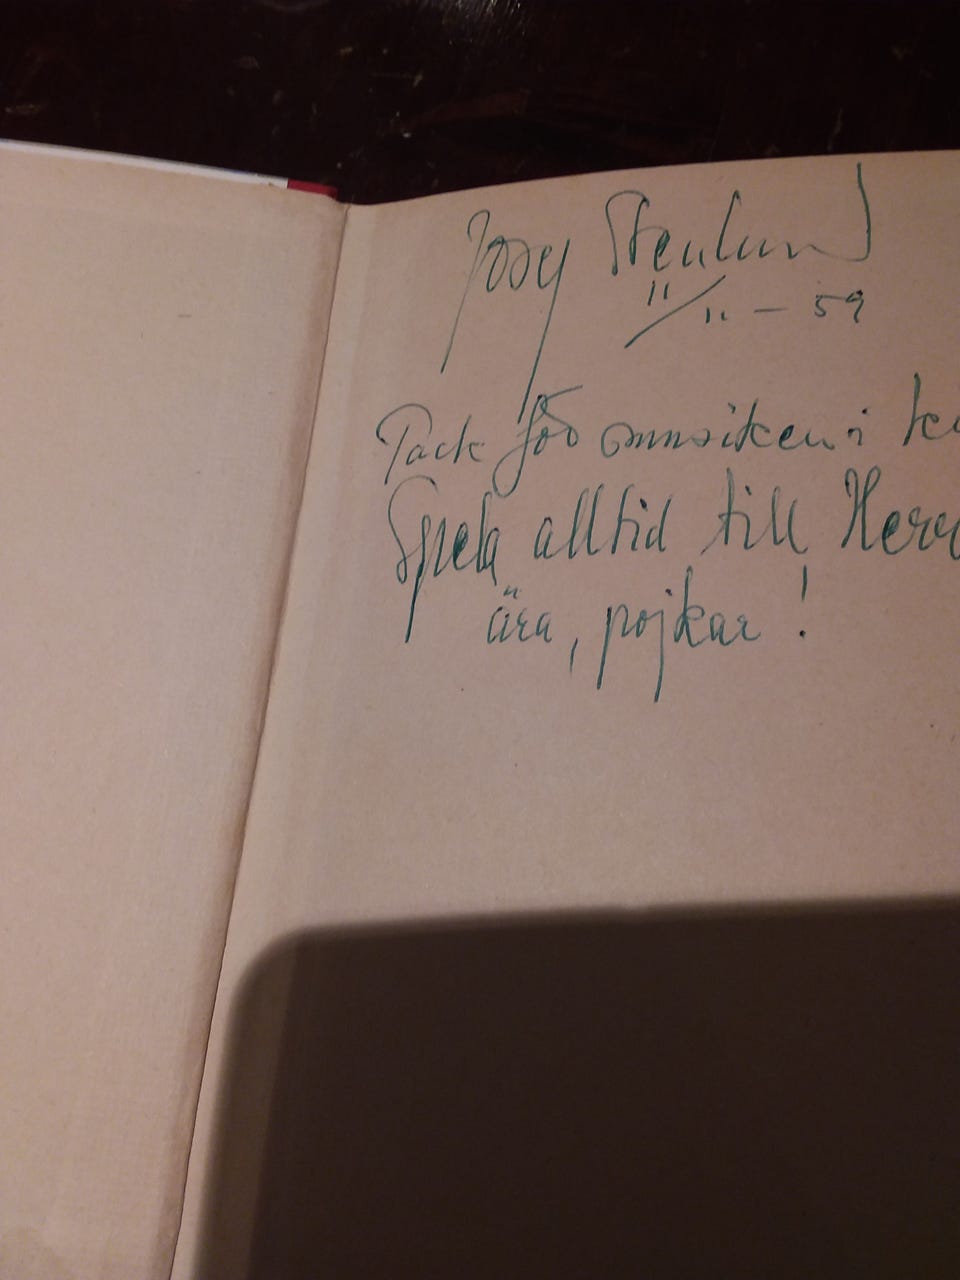 Josef Stenlund
11/11 - 59
Tack för musiken i
Spela alltid till
ära, pojkar!